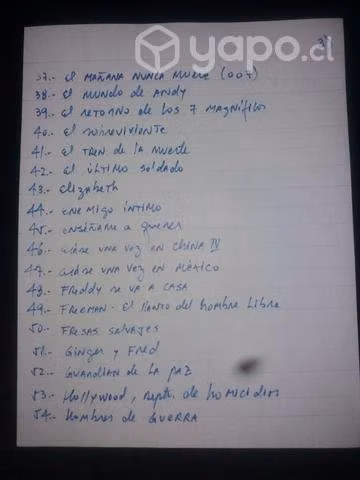 yapo.cl
3)
37.- El MAÑANA NUNCA MUERE (007)
38.- El MUNDO de ANDY
39.- El RETORNO de LOS 7 MAGNÍFICOS
40.- El SOBREVIVIENTE
41.- El TREN de la MUERTE
42.- El ÚLTIMO SOLDADO
43.- Elizabeth
44.- ENEMIGO ÍNTIMO
45.- ENSÉÑAME a querer
46.- ERÁSE UNA VEZ EN CHINA IV
47.- ERÁSE UNA VEZ EN MÉXICO
48.- FREDDY se VA A CASA
49.- FREEMAN - El llanto del hombre LIBRE
50.- FRESAS SALVAJES
51.- GINGER y FRED
52.- GUARDIAN de LA PAZ
53.- Hollywood, Dpto. de homicidios
54.- Hombres de GUERRA